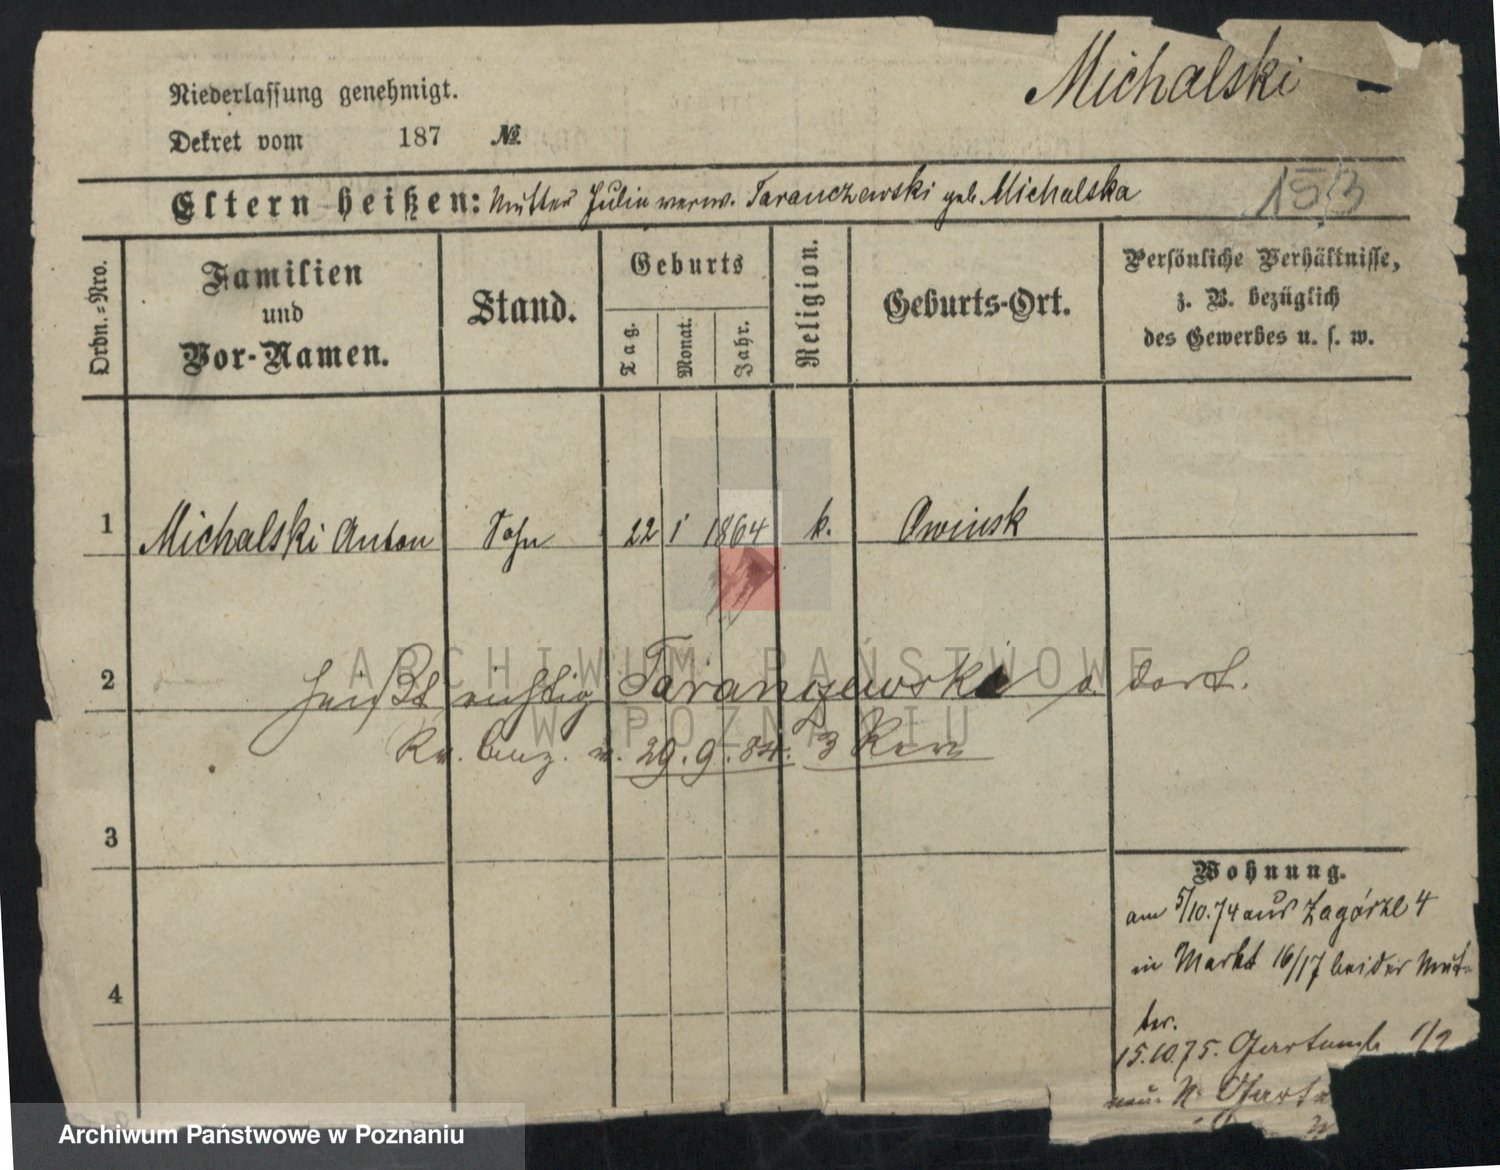 Michalski
Niederlassung genehmigt.
Dekret vom 187 №
Eltern heißen: Mutter Julia verw. Taranczewski geb. Michalska
153
Ordn.-Nro.
Familien
und
Vor-Namen.
Stand.
Geburts
Tag.
Monat.
Jahr.
Religion.
Geburts-Ort.
Persönliche Verhältnisse,
z. B. bezüglich
des Gewerbes u. s. w.
1 Michalski Anton Sohn 22 1 1864 k. Owinsk
2 heißt richtig Taranczewski s. dort.
29.9.84.
3
4
Wohnung.
am 5/10.74 aus Zagórze 4
in Markt 16/17 bei der Mut-
ter.
15.10.75. Gartenstr
ARCHIWUM PAŃSTWOWE
W POZNANIU
Archiwum Państwowe w Poznaniu